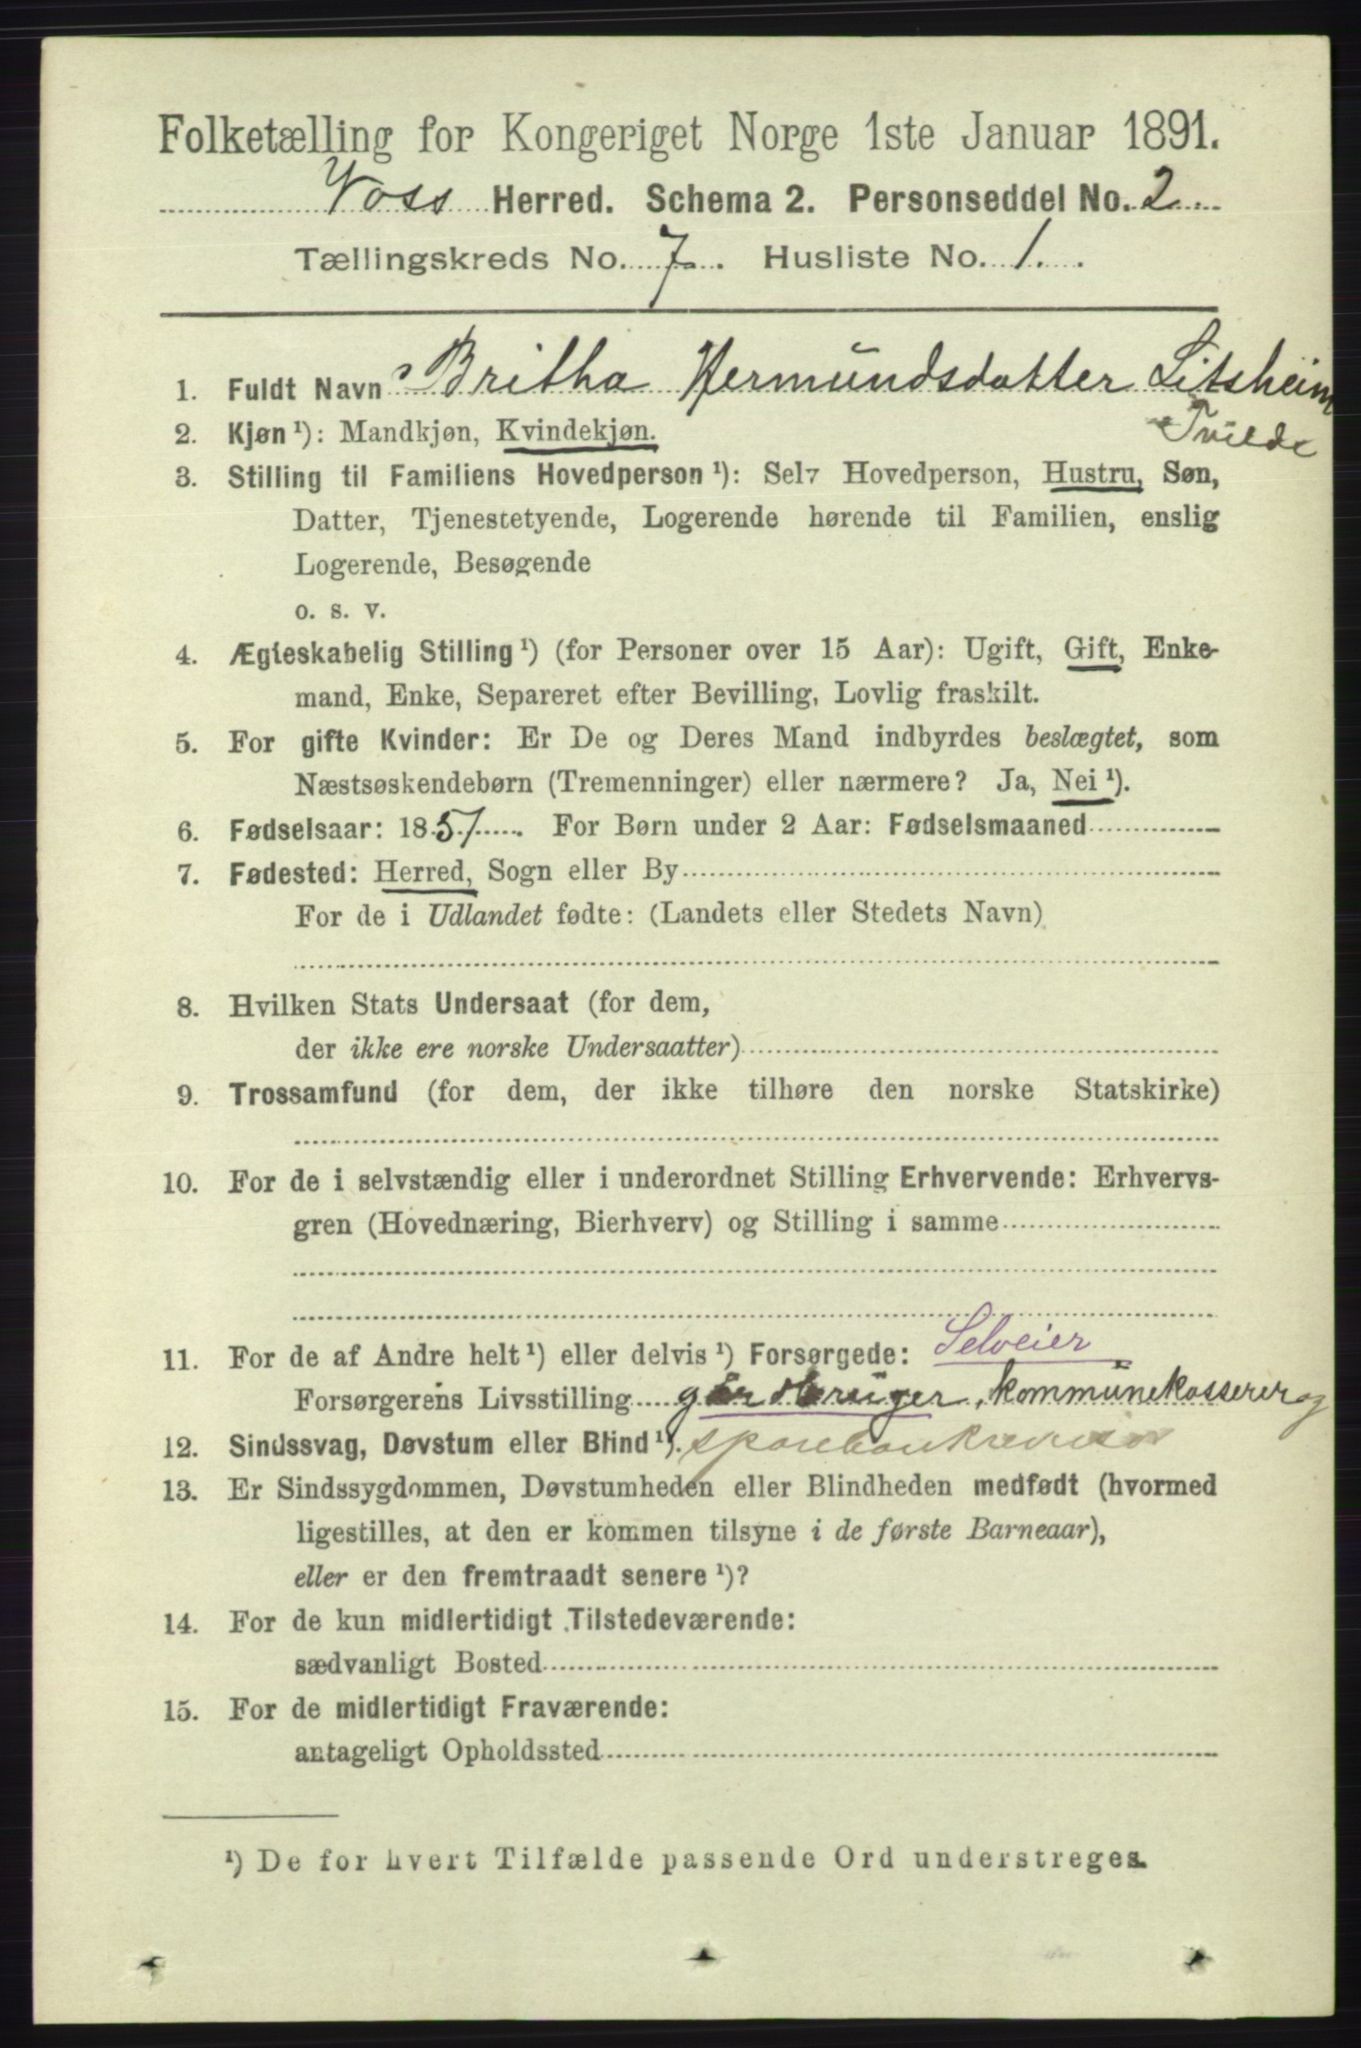 Folketælling for Kongeriget Norge 1ste Januar 1891.
Voss Herred. Schema 2. Personseddel No. 2
Tællingskreds No. 7. Husliste No. 1.
1. Fuldt Navn Britha Hermundsdatter Litsheim
Tvilde
2. Kjøn ¹): Mandkjøn, Kvindekjøn.
3. Stilling til Familiens Hovedperson ¹): Selv Hovedperson, Hustru, Søn,
Datter, Tjenestetyende, Logerende hørende til Familien, enslig
Logerende, Besøgende
o. s. v.
4. Ægteskabelig Stilling ¹) (for Personer over 15 Aar): Ugift, Gift, Enke-
mand, Enke, Separeret efter Bevilling, Lovlig fraskilt.
5. For gifte Kvinder: Er De og Deres Mand indbyrdes beslægtet, som
Næstsøskendebørn (Tremenninger) eller nærmere? Ja, Nei ¹).
6. Fødselsaar: 1857. For Børn under 2 Aar: Fødselsmaaned
7. Fødested: Herred, Sogn eller By
For de i Udlandet fødte: (Landets eller Stedets Navn)
8. Hvilken Stats Undersaat (for dem,
der ikke ere norske Undersaatter)
9. Trossamfund (for dem, der ikke tilhøre den norske Statskirke)
10. For de i selvstændig eller i underordnet Stilling Erhvervende: Erhvervs-
gren (Hovednæring, Bierhverv) og Stilling i samme
11. For de af Andre helt ¹) eller delvis ¹) Forsørgede: Selveier
Forsørgerens Livsstilling gårdbruger, kommunekasserer og
12. Sindssvag, Døvstum eller Blind ¹). sparebankrevisor
13. Er Sindssygdommen, Døvstumheden eller Blindheden medfødt (hvormed
ligestilles, at den er kommen tilsyne i de første Barneaar),
eller er den fremtraadt senere ¹)?
14. For de kun midlertidigt Tilstedeværende:
sædvanligt Bosted
15. For de midlertidigt Fraværende:
antageligt Opholdssted
¹) De for hvert Tilfælde passende Ord understreges.